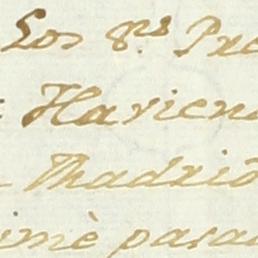 Los S.res Pre
Havien
Madrid
imè pasa